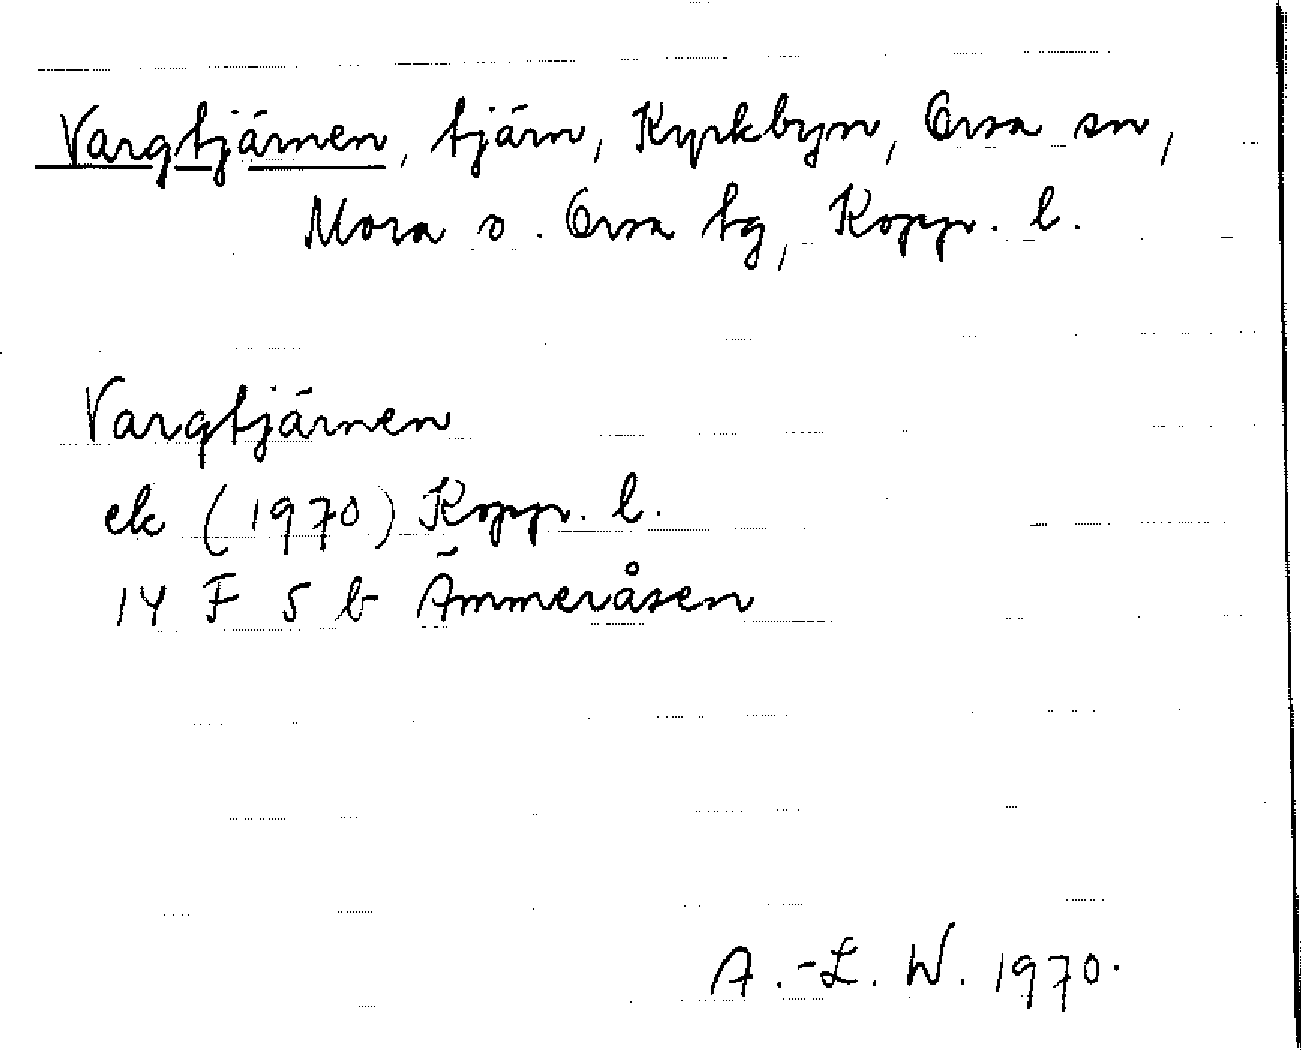 Vargtjärnen, tjärn, Kyrkbyn, Orsa sn,
Mora o. Orsa tg, Kopp. l.
Vargtjärnen
ek (1970) Kopp. l.
14 F 5 b Ämmeråsen
A.-L. W. 1970.